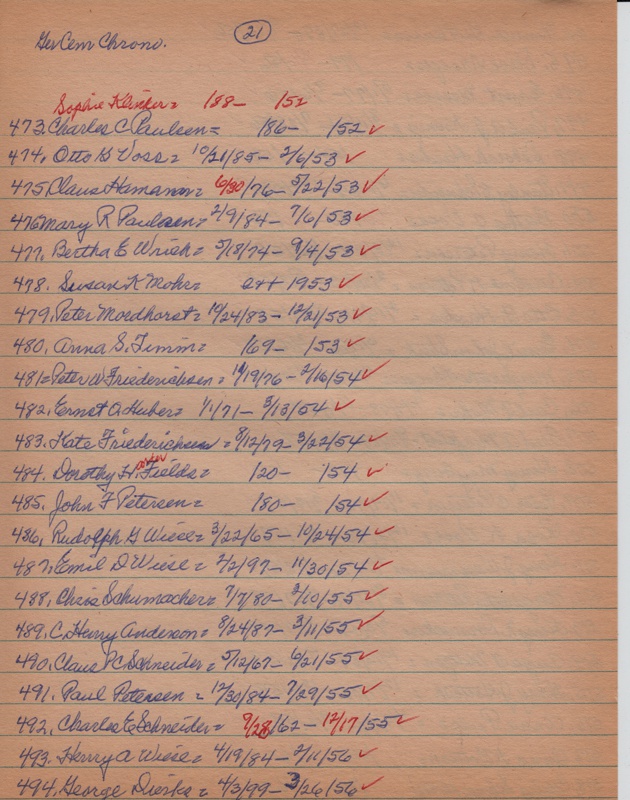 Ger Cem Chrono. 21
Sophie Klinker = /88- /52
473. Charles C Paulsen = /86- /52 ✓
474. Otto G Voss = 10/21/85- 2/6/53 ✓
475. Claus Hamann = 6/30/76- 5/22/53 ✓
476 Mary R Paulsen = 2/9/84- 7/6/53 ✓
477. Bertha E Wriek = 5/18/74- 9/4/53 ✓
478. Susan K Moher = 1953 ✓
479. Peter Mordhorst = 10/24/83- 12/21/53 ✓
480. Anna S. Timm = /69- /53 ✓
481= Peter W Friederichsen = 11/19/76- 2/16/54 ✓
482. Ernst O Huber = 1/1/71- 3/13/54 ✓
483. Kate Friederichsen = 8/12/79- 3/22/54 ✓
484. Dorothy H. Fields = /20- /54 ✓
485. John F Petersen = /80- /54 ✓
486. Rudolph G Wiese = 3/22/65- 10/24/54 ✓
487. Emil D Wiese = 2/2/97- 11/30/54 ✓
488. Chris Schumacher = 7/7/80- 2/10/55 ✓
489. C. Henry Anderson = 8/24/87- 3/11/55 ✓
490. Claus C Schneider = 5/12/67- 6/21/55 ✓
491. Paul Petersen = 12/30/84- 7/29/55 ✓
492. Charles E Schneider = 9/28/62- 12/17/55 ✓
493. Henry A Wiese = 4/19/84- 2/11/56 ✓
494. George Dieske = 4/3/99- 3/26/56 ✓